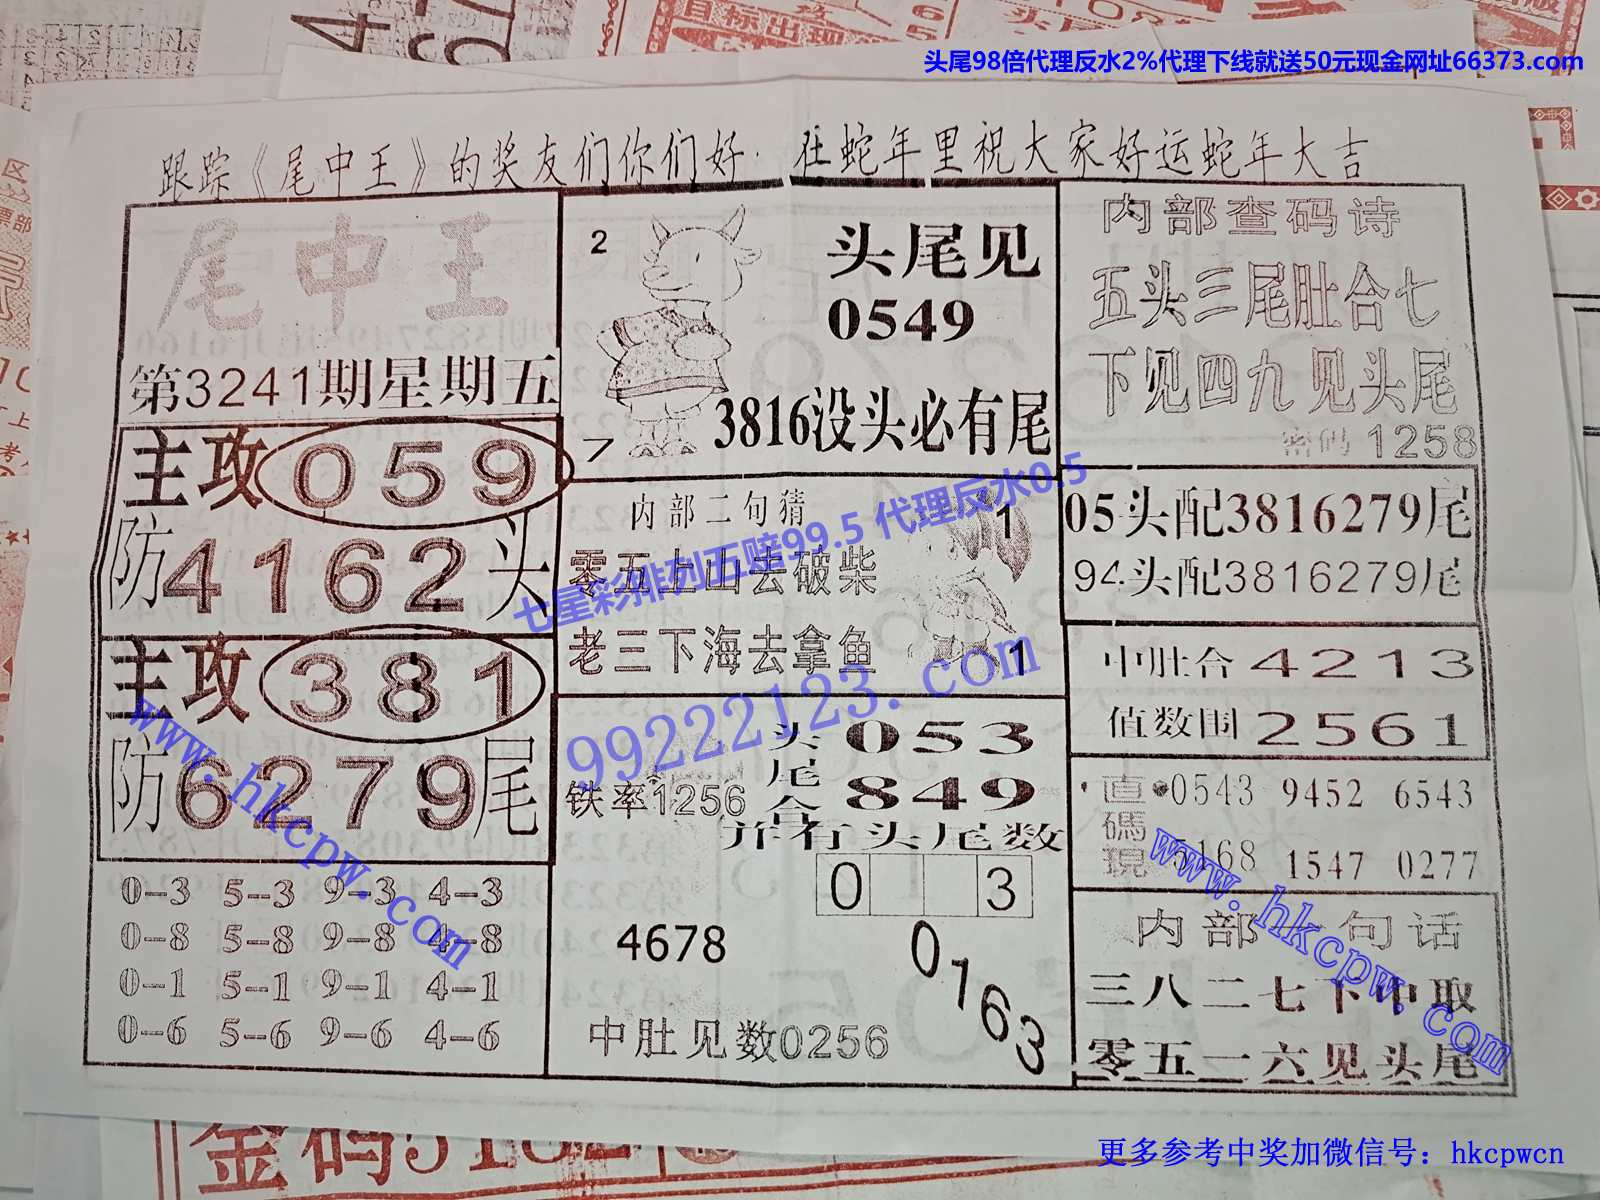 头尾98倍代理反水2%代理下线就送50元现金网址66373.com
目标出现
跟踪《尾中王》的奖友们你们好·在蛇年里祝大家好运蛇年大吉
尾中王
第3241期星期五
主攻059
防4162头
主攻381
防6279尾
0--3 5--3 9--3 4--3
0--8 5--8 9--8 4--8
0--1 5--1 9--1 4--1
0--6 5--6 9--6 4--6
2
7
头尾见
0549
3816没头必有尾
内部二句猜
零五上山去破柴
老三下海去拿鱼
1
1
铁率1256
头尾合
053
849
并有头尾数
0 3
4678
0163
中肚见数0256
内部查码诗
五头三尾肚合七
下见四九见头尾
密码1258
05头配3816279尾
94头配3816279尾
中肚合4213
值数围2561
直碼現
0543 9452 6543
5168 1547 0277
内部 句话
三八二七下中取
零五一六见头尾
七星彩排列五赔99.5 代理反水0.5
99222123.com
www.hkcpw.com
www.hkcpw.com
金码5162
更多参考中奖加微信号：hkcpwcn